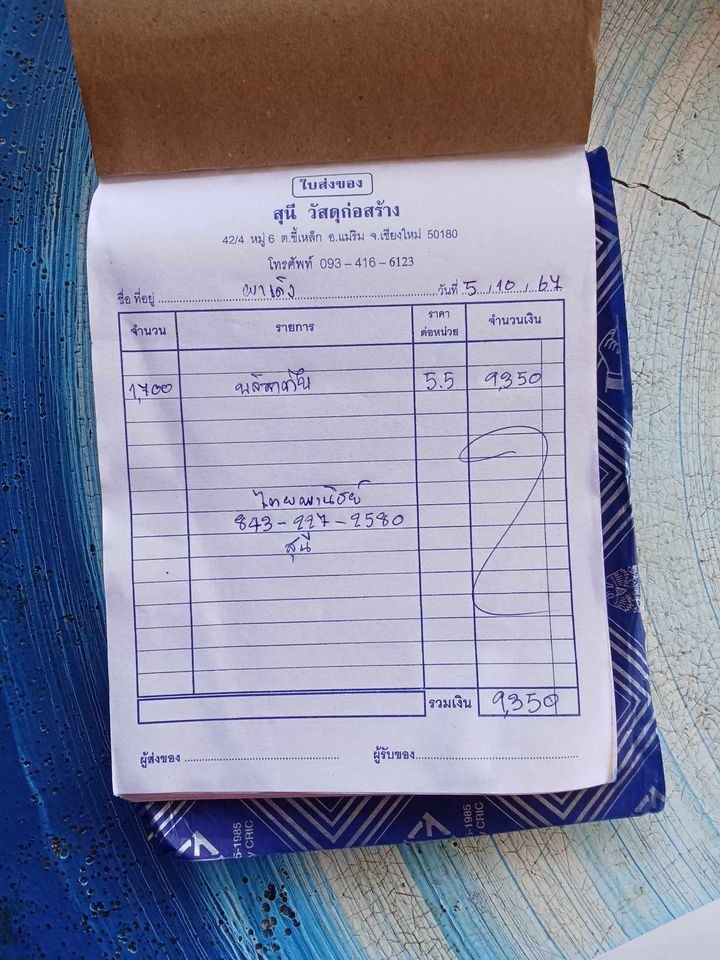 ใบส่งของ
สุนี วัสดุก่อสร้าง
42/4 หมู่ 6 ต.ขี้เหล็ก อ.แม่ริม จ.เชียงใหม่ 50180
โทรศัพท์ 093-416-6123
ชื่อ ที่อยู่ ผาเดิง วันที่ 5 / 10 / 67
จำนวน รายการ ราคาต่อหน่วย จำนวนเงิน
1,700 5.5 9,350
ไทยพานิชย์
843-227-2580
สุนี
รวมเงิน 9,350
ผู้ส่งของ ผู้รับของ
5-1985
y CRIC
5-1985
y CRIC